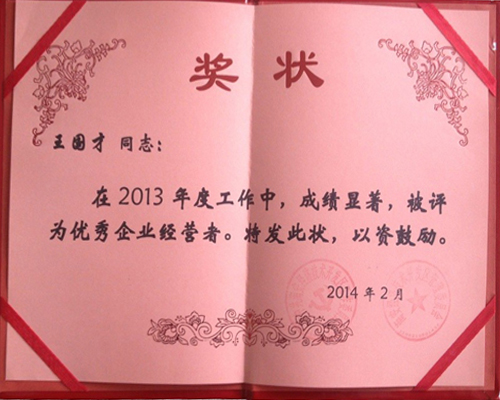 奖状
王国才 同志：
在 2013 年度工作中，成绩显著，被评
为优秀企业经营者。特发此状，以资鼓励。
2014 年 2 月